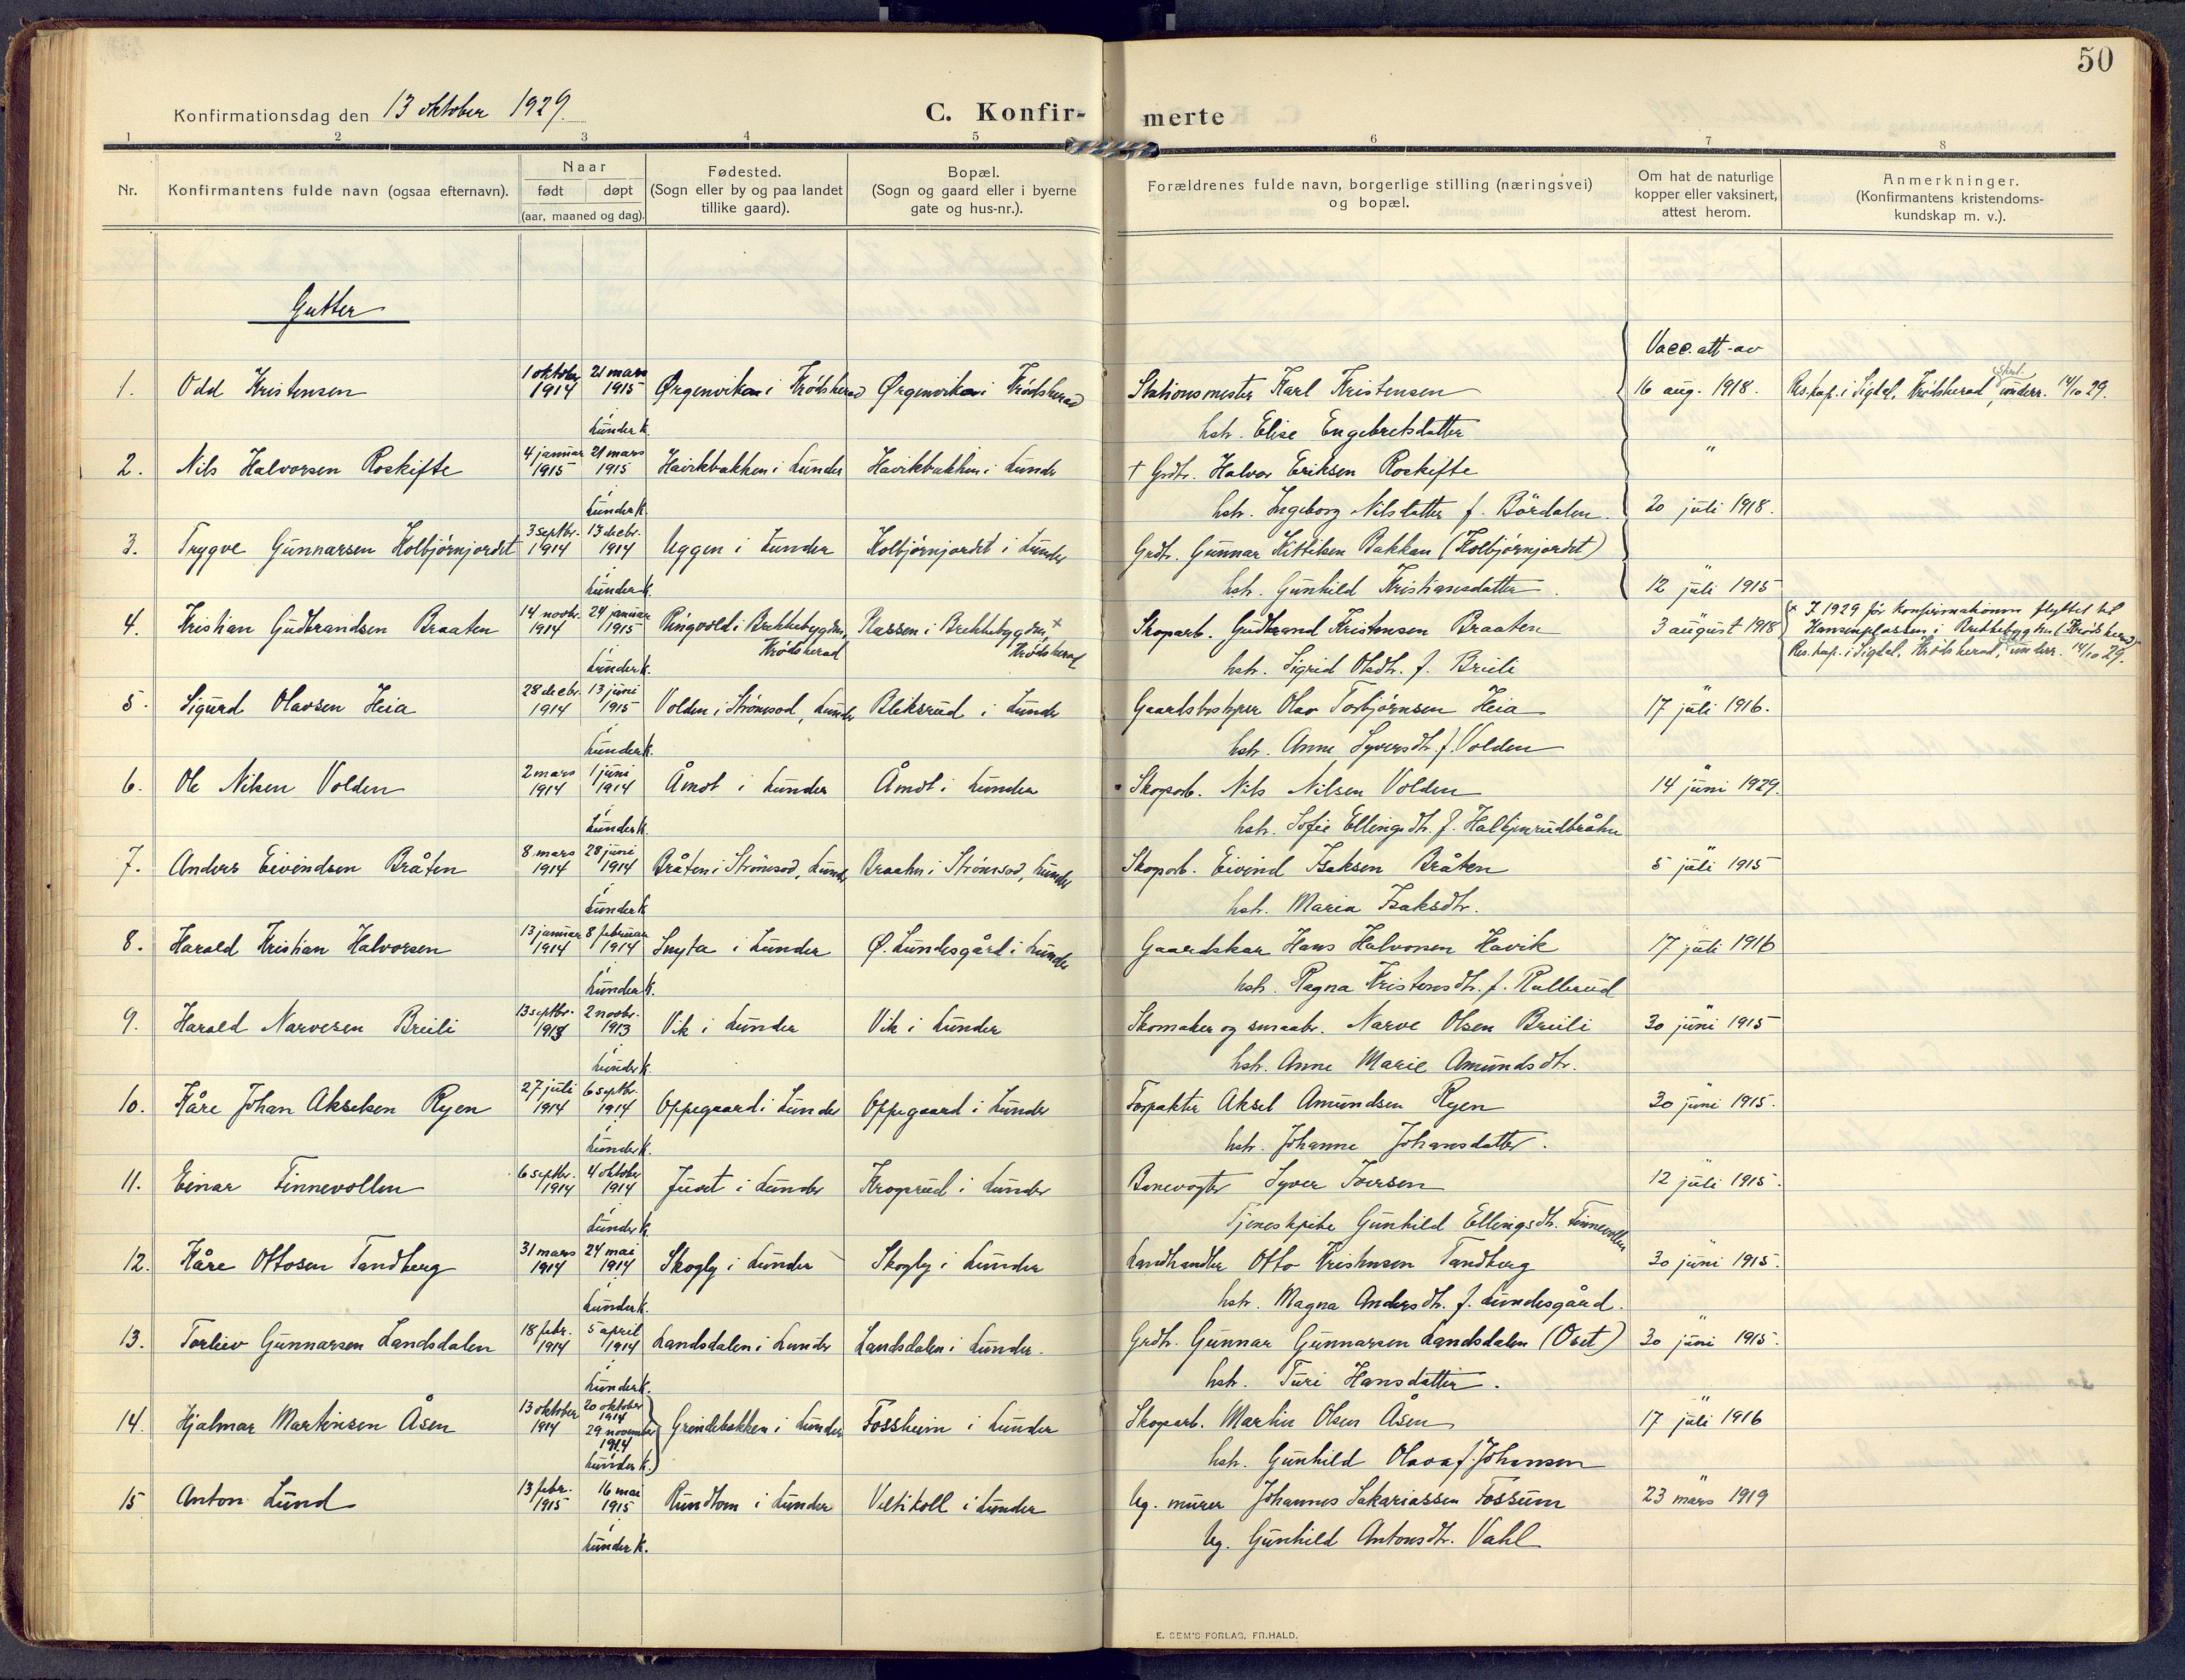 50
Konfirmationsdag den 13 oktober 1929.
C. Konfir-
merte
1 2 3 4 5 6 7 8
Nr.
Konfirmantens fulde navn (ogsaa efternavn).
Naar
født døpt
(aar, maaned og dag).
Fødested.
(Sogn eller by og paa landet
tillike gaard).
Bopæl.
(Sogn og gaard eller i byerne
gate og hus-nr.).
Forældrenes fulde navn, borgerlige stilling (næringsvei)
og bopæl.
Om hat de naturlige
kopper eller vaksinert,
attest herom.
Anmerkninger.
(Konfirmantens kristendoms-
kundskap m. v.).
Gutter
Vacc. att. av
1. Odd Kristensen 1 oktober 1914 21 mars 1915 Ørgenviken i Krødsherad Ørgenviken i Krødsherad Stationsmester Karl Kristensen 16 aug. 1918. Res. kap. i Sigdal, Krødsherad, skrl. underr. 14/10 29.
i Lunder k. hstr. Elise Engebretsdatter
2. Nils Halvorsen Roskifte 4 januar 1915 21 mars 1915 Havikbakken i Lunder Havikbakken i Lunder † Grdbr. Halvor Eriksen Roskifte "
i Lunder k. hstr. Ingeborg Nilsdatter f. Bårdalen. 20 juli 1918.
3. Trygve Gunnarsen Kolbjørnjordet 3 septbr. 1914 13 decbr. 1914 Uggen i Lunder Kolbjørnjordet i Lunder Grdbr. Gunnar Kittilsen Bakken (Kolbjørnjordet)
i Lunder k. hstr. Gunhild Kristiansdatter. 12 juli 1915
4. Kristian Gudbrandsen Braaten 14 novbr. 1914 24 januar 1915 Ringvold i Brekkebygden, Krødsherad Plassen i Brekkebygden, × Krødsherad Skogarb. Gudbrand Kristensen Braaten 3 august 1918 × I 1929 før konfirmationen flyttet til
Hansenplassen i Brekkebygden (Krødsherad)
Res. kap. i Sigdal, Krødsherad, underr. 14/10 29.
i Lunder k. hstr. Sigrid Olsdtr. f. Breili
5. Sigurd Olavsen Heia 28 decbr. 1914 13 juni 1915 Volden i Strømsod, Lunder Bleksrud i Lunder Gaardsbestyrer Olav Torbjørnsen Heia 17 juli 1916.
i Lunder k. hstr. Anne Syversdtr. f. Volden
6. Ole Nilsen Volden 2 mars 1914 1 juni 1914 Åmot i Lunder Åmot i Lunder Skogarb. Nils Nilsen Volden 14 juni 1929.
i Lunder k. hstr. Sofie Ellingsdtr. f.
7. Anders Eivindsen Bråten 8 mars 1914 28 juni 1914 Bråten i Strømsod, Lunder Braaten i Strømsod, Lunder Skogarb. Eivind Isaksen Bråten 5 juli 1915
i Lunder k hstr. Maria Isaksdtr.
8. Harald Kristian Halvorsen 13 januar 1914 8 februar 1914 Snyta i Lunder Ø. Lundesgård i Lunder Gaardskar Hans Halvorsen Havik 17 juli 1916
i Lunder k. hstr. Ragna Kristensdtr. f. Rallerud
9. Harald Narvesen Breili 13 septbr. 1913 2 novbr. 1913 Vik i Lunder Vik i Lunder Skomaker og smaabr. Narve Olsen Breili 30 juni 1915
i Lunder k. hstr. Anne Marie Amundsdtr.
10. Kåre Johan Akselsen Ryen 27 juli 1914 6 septbr. 1914 Oppegaard i Lunder Oppegaard i Lunder Forpakter Aksel Amundsen Ryen 30 juni 1915.
i Lunder k. hstr. Johanne Johansdatter.
11. Einar Finnevollen 6 septbr. 1914 4 oktober 1914 Juvet i Lunder Krogsrud i Lunder Banevogter Syver Iversen 12 juli 1915.
i Lunder k. Tjenestpike Gunhild Ellingsdtr. Finnevollen
12. Kåre Ottosen Tandberg 31 mars 1914 24 mai 1914 Skogly i Lunder Skogly i Lunder Landhandler Otto Kristensen Tandberg 30 juni 1915.
i Lunder k. hstr. Magna Andersdtr. f. Lundesgård.
13. Torleiv Gunnarsen Landsdalen 18 febr. 1914 5 april 1914 Landsdalen i Lunder Landsdalen i Lunder. Grdbr. Gunnar Gunnarsen Landsdalen (Oset) 30 juni 1915.
i Lunder k. hstr. Turi Hansdatter.
14. Hjalmar Martinsen Åsen 13 oktober 1914 20 oktober 1914 29 november 1914 Grendebakken i Lunder Fossheim i Lunder Skogarb. Martin Olsen Åsen 17 juli 1916
i Lunder k. hstr. Gunhild Olava f. Johansen
15 Anton Lund 13 febr. 1915 16 mai 1915 Rundtom i Lunder Veltikoll i Lunder Ug. murer Johannes Sakariassen Fossum 23 mars 1919
i Lunder k. Ug. Gunhild Antonsdtr. Vahl
E. SEM'S FORLAG, FR.HALD.